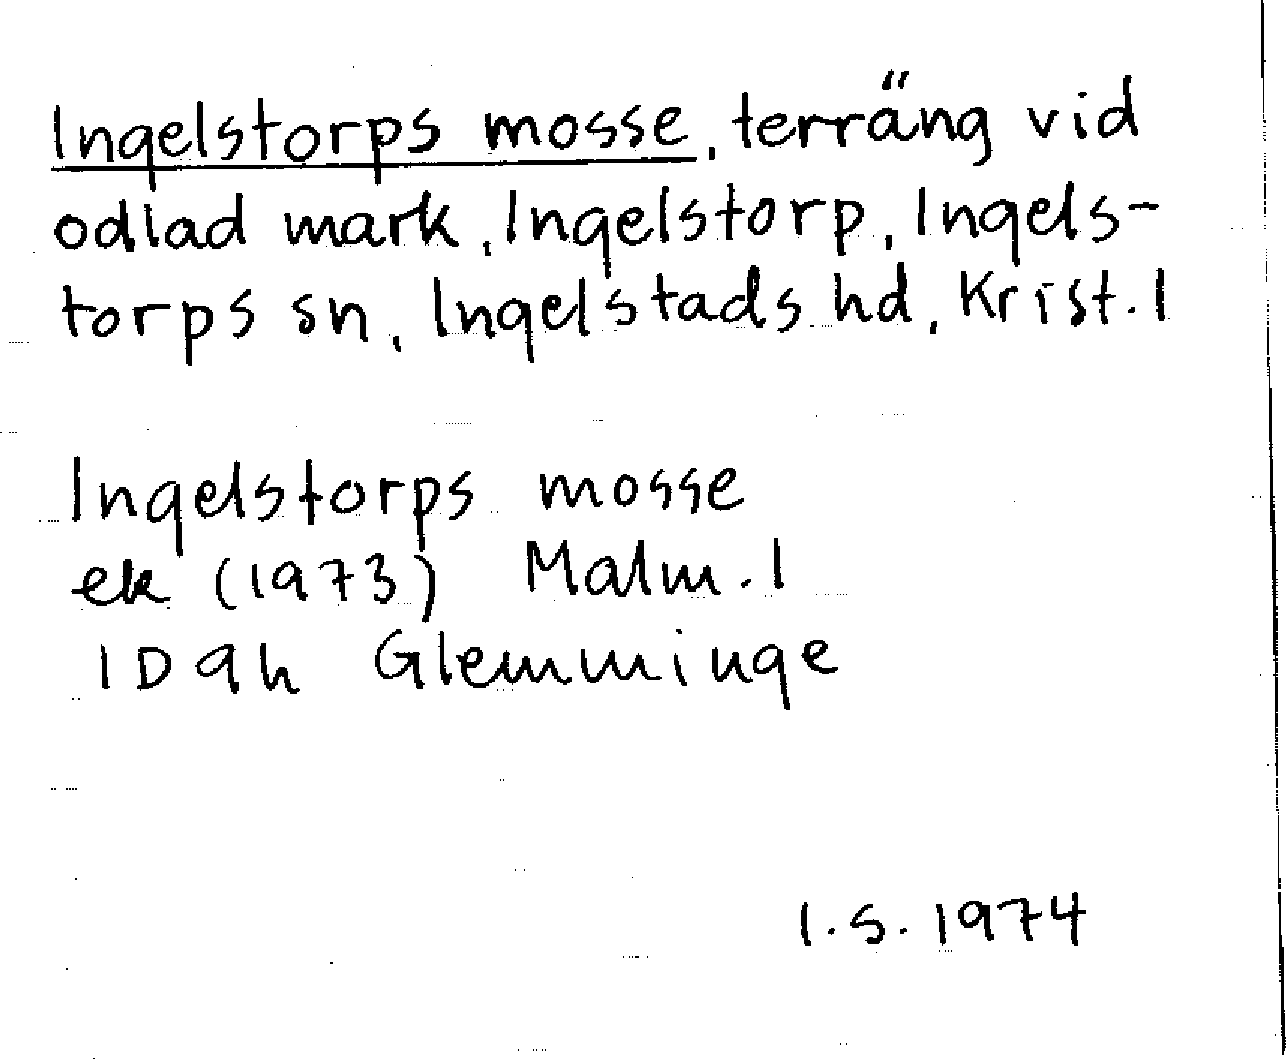 Ingelstorps mosse, terräng vid
odlad mark, Ingelstorp, Ingels-
torps sn, Ingelstads hd, Krist. l
Ingelstorps mosse
ek (1973) Malm. l
1D 9h Glemminge
I.S. 1974